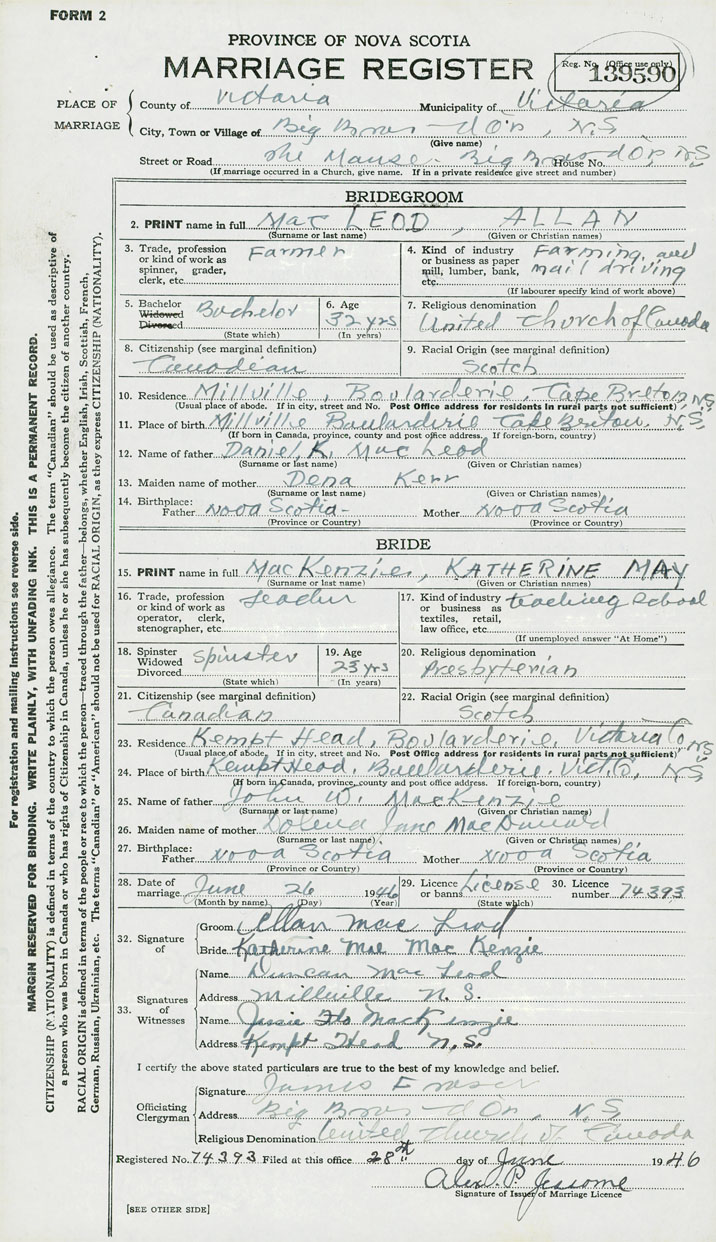 FORM 2
PROVINCE OF NOVA SCOTIA
MARRIAGE REGISTER
Reg. No. (Office use only)
139590
PLACE OF MARRIAGE
County of Victoria Municipality of Victoria
City, Town or Village of Big Bras d'Or, N.S
(Give name)
Street or Road The Manse - Big Bras d'Or, N.S House No.
(If marriage occurred in a Church, give name. If in a private residence give street and number)
BRIDEGROOM
2. PRINT name in full MacLEOD, ALLAN
(Surname or last name) (Given or Christian names)
3. Trade, profession or kind of work as spinner, grader, clerk, etc. Farmer
4. Kind of industry or business as paper mill, lumber, bank, etc. Farming and mail driving
(If labourer specify kind of work above)
5. Bachelor Widowed Divorced Bachelor
(State which)
6. Age 32 yrs
(In years)
7. Religious denomination
United Church of Canada
8. Citizenship (see marginal definition)
Canadian
9. Racial Origin (see marginal definition)
Scotch
10. Residence Millville, Boularderie, Cape Breton, N.S
(Usual place of abode. If in city, street and No. Post Office address for residents in rural parts not sufficient)
11. Place of birth Millville Boularderie Cape Breton, N.S,
(If born in Canada, province, county and post office address. If foreign-born, country)
12. Name of father Daniel K. MacLeod
(Surname or last name) (Given or Christian names)
13. Maiden name of mother Dena Kerr
(Surname or last name) (Given or Christian names)
14. Birthplace: Father Nova Scotia- Mother Nova Scotia
(Province or Country) (Province or Country)
BRIDE
15. PRINT name in full MacKenzie, KATHERINE MAY
(Surname or last name) (Given or Christian names)
16. Trade, profession or kind of work as operator, clerk, stenographer, etc. Teacher
17. Kind of industry or business as textiles, retail, law office, etc. teaching school
(If unemployed answer "At Home")
18. Spinster Widowed Divorced Spinster
(State which)
19. Age 23 yrs
(In years)
20. Religious denomination
Presbyterian
21. Citizenship (see marginal definition)
Canadian
22. Racial Origin (see marginal definition)
Scotch
23. Residence Kempt Head, Boularderie, Victoria Co, N.S
(Usual place of abode. If in city, street and No. Post Office address for residents in rural parts not sufficient)
24. Place of birth Kempt Head, Boularderie, Vict. Co, N.S
(If born in Canada, province, county and post office address. If foreign-born, country)
25. Name of father John W. MacKenzie
(Surname or last name) (Given or Christian names)
26. Maiden name of mother Lolena Jane MacDonald
(Surname or last name) (Given or Christian names)
27. Birthplace: Father Nova Scotia Mother Nova Scotia
(Province or Country) (Province or Country)
28. Date of marriage June 26 1946
(Month by name) (Day) (Year)
29. Licence or banns License
(State which)
30. Licence number 74393
32. Signature of
Groom Allan MacLeod
Bride Katherine Mae MacKenzie
33. Signatures of Witnesses
Name Duncan MacLeod
Address Millville N.S.
Name Jessie Flo MacKenzie
Address Kempt Head N.S.
I certify the above stated particulars are true to the best of my knowledge and belief.
Officiating Clergyman
Signature James Fraser
Address Big Bras d'Or, N.S,
Religious Denomination United Church of Canada
Registered No. 74393 Filed at this office 28th day of June 1946
Alex. P. Jessome
Signature of Issuer of Marriage Licence
[SEE OTHER SIDE]
For registration and mailing instructions see reverse side.
MARGIN RESERVED FOR BINDING. WRITE PLAINLY, WITH UNFADING INK. THIS IS A PERMANENT RECORD.
CITIZENSHIP (NATIONALITY) is defined in terms of the country to which the person owes allegiance. The term "Canadian" should be used as descriptive of
a person who was born in Canada or who has rights of Citizenship in Canada, unless he or she has subsequently become the citizen of another country.
RACIAL ORIGIN is defined in terms of the people or race to which the person—traced through the father—belongs, whether English, Irish, Scottish, French,
German, Russian, Ukrainian, etc. The terms "Canadian" or "American" should not be used for RACIAL ORIGIN, as they express CITIZENSHIP (NATIONALITY).